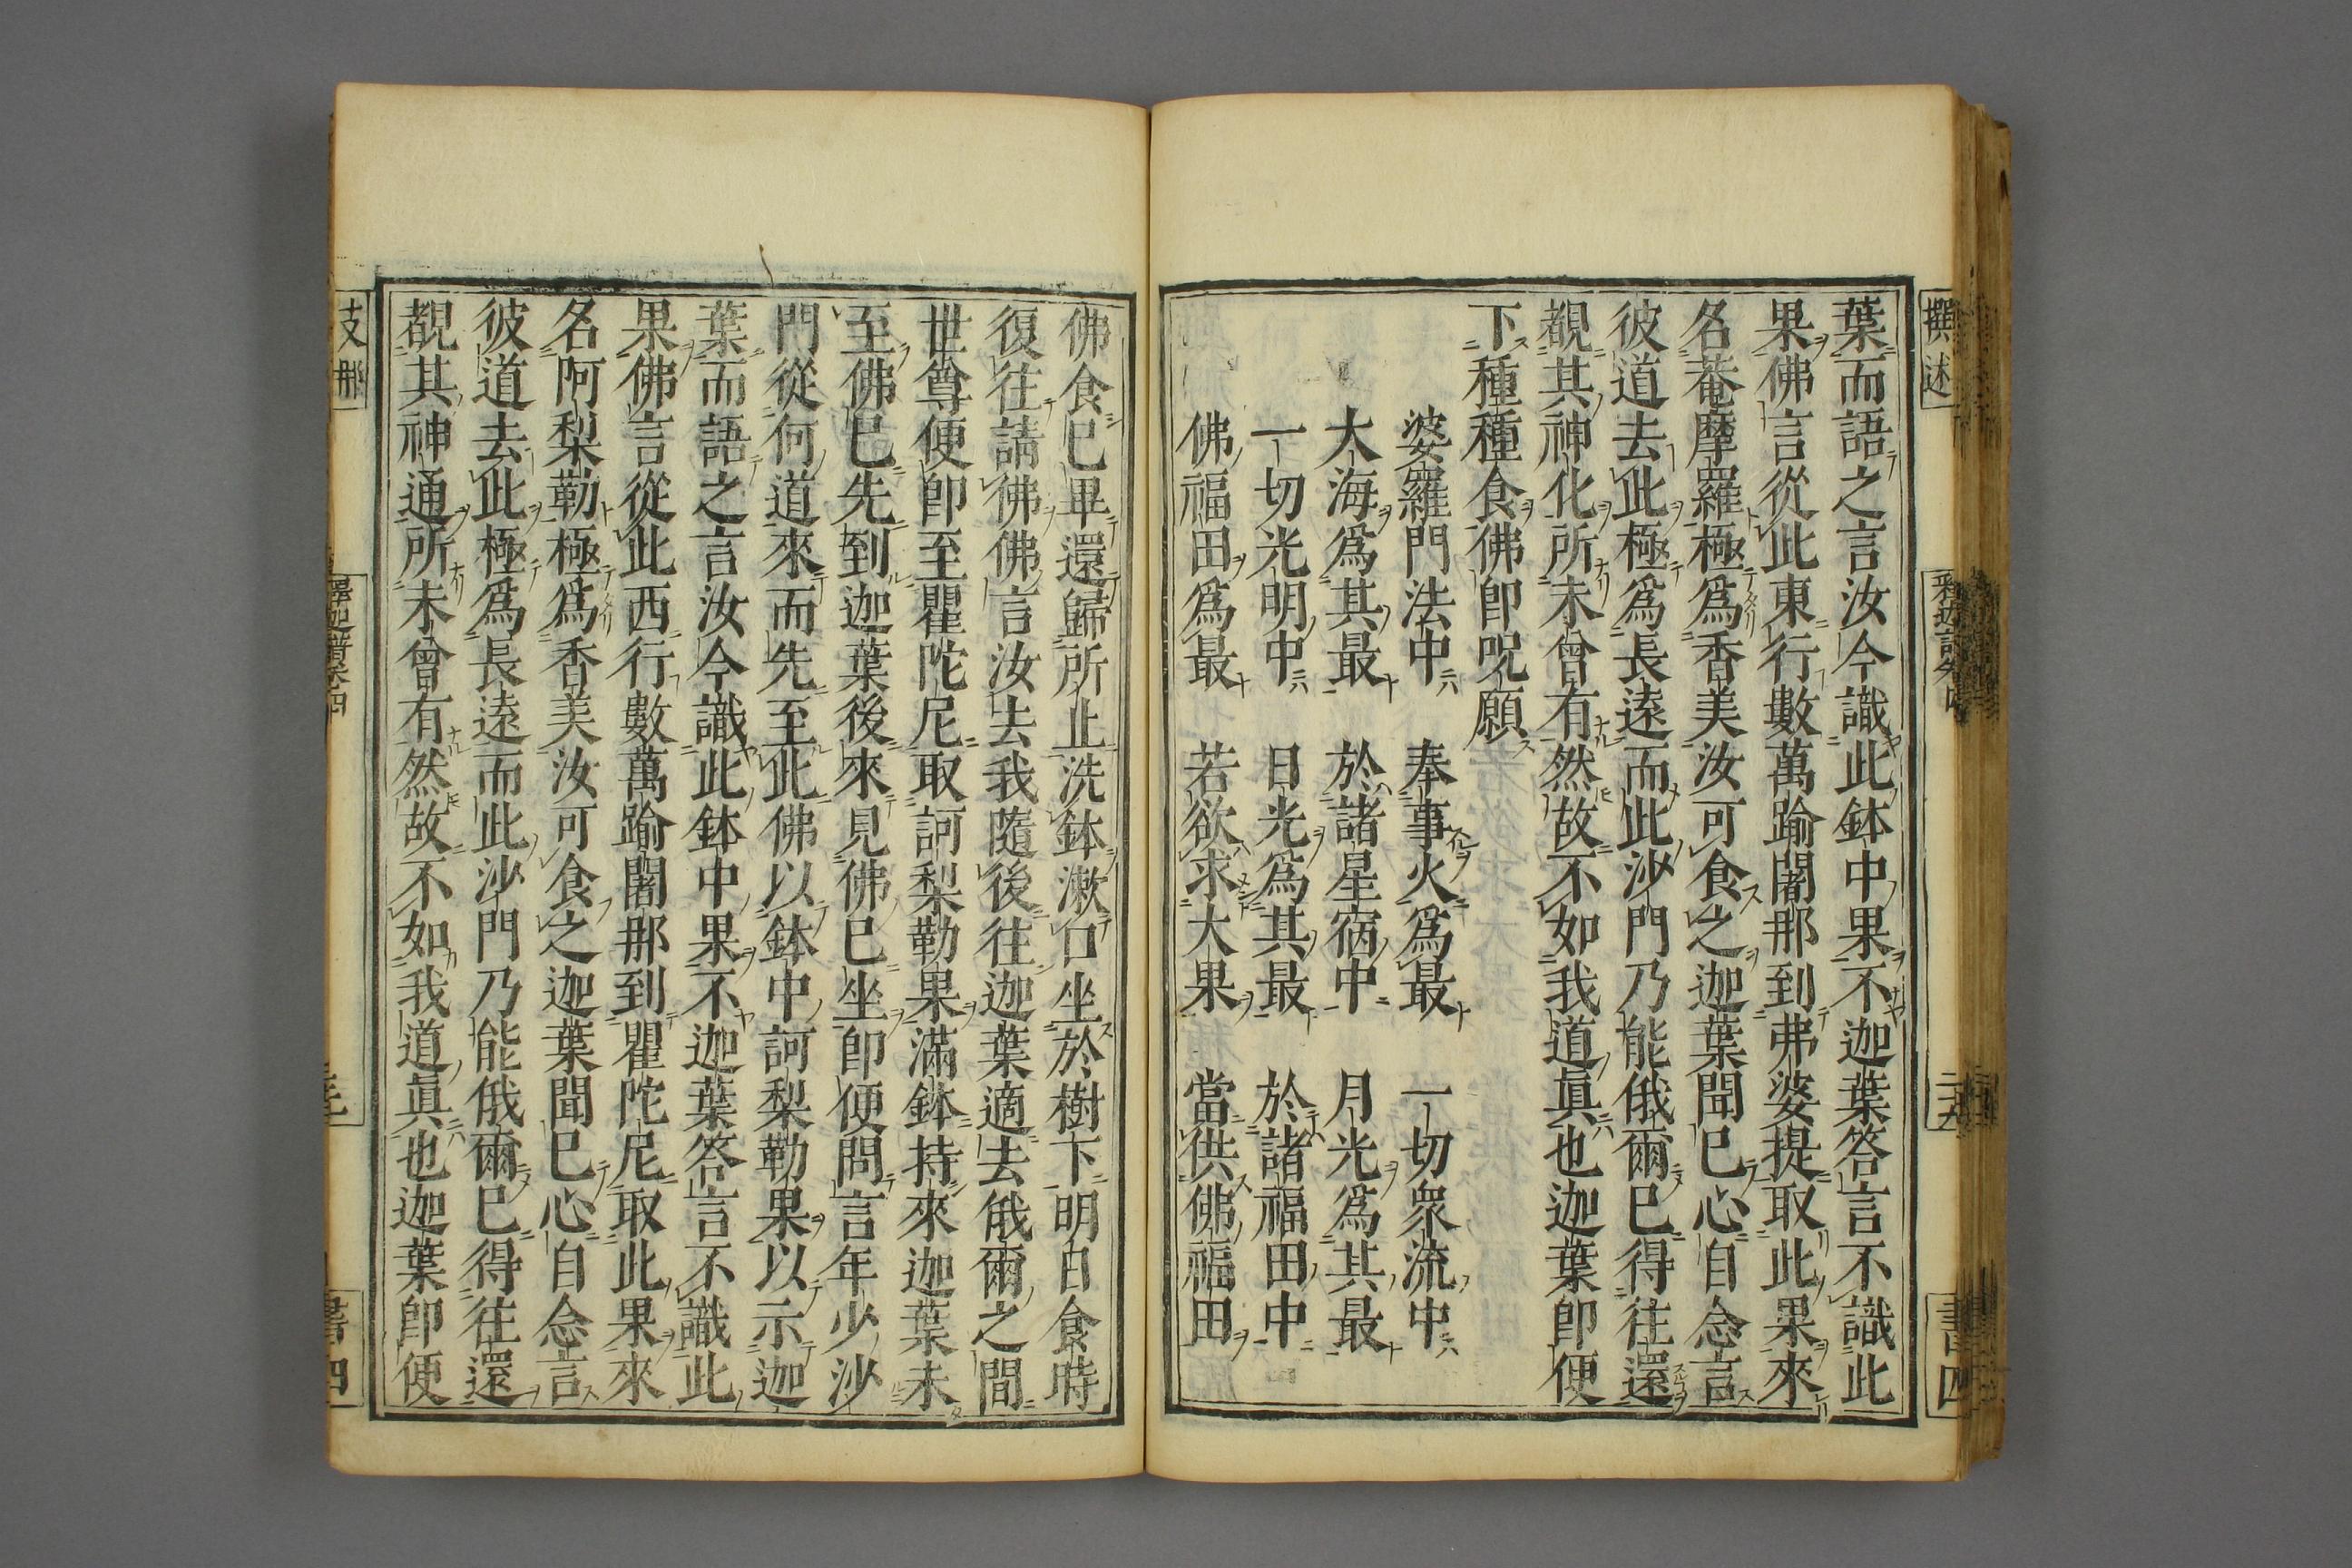 撰述
釋迦譜卷四
葉而語之言汝今識此鉢中果不迦葉答言不識此
果佛言從此東行數萬踰闍那到弗婆提取此果來
名菴摩羅極爲香美汝可食之迦葉聞已心自念言
彼道去此極爲長遠而此沙門乃能俄爾已得往還
覩其神化所未曾有然故不如我道眞也迦葉即便
下種種食佛即呪願
婆羅門法中　奉事火爲最　一切衆流中
大海爲其最　於諸星宿中　月光爲其最
一切光明中　日光爲其最　於諸福田中
佛福田爲最　若欲求大果　當供佛福田
佛食已畢還歸所止洗鉢漱口坐於樹下明日食時
復往請佛佛言汝去我隨後往迦葉適去俄爾之間
世尊便即至瞿陀尼取訶梨勒果滿鉢持來迦葉未
至佛已先到迦葉後來見佛已坐即便問言年少沙
門從何道來而先至此佛以鉢中訶梨勒果以示迦
葉而語之言汝今識此鉢中果不迦葉答言不識此
果佛言從此西行數萬踰闍那到瞿陀尼取此果來
名阿梨勒極爲香美汝可食之迦葉聞已心自念言
彼道去此極爲長遠而此沙門乃能俄爾已得往還
覩其神通所未曾有然故不如我道眞也迦葉即便
支那
釋迦譜卷四
書四